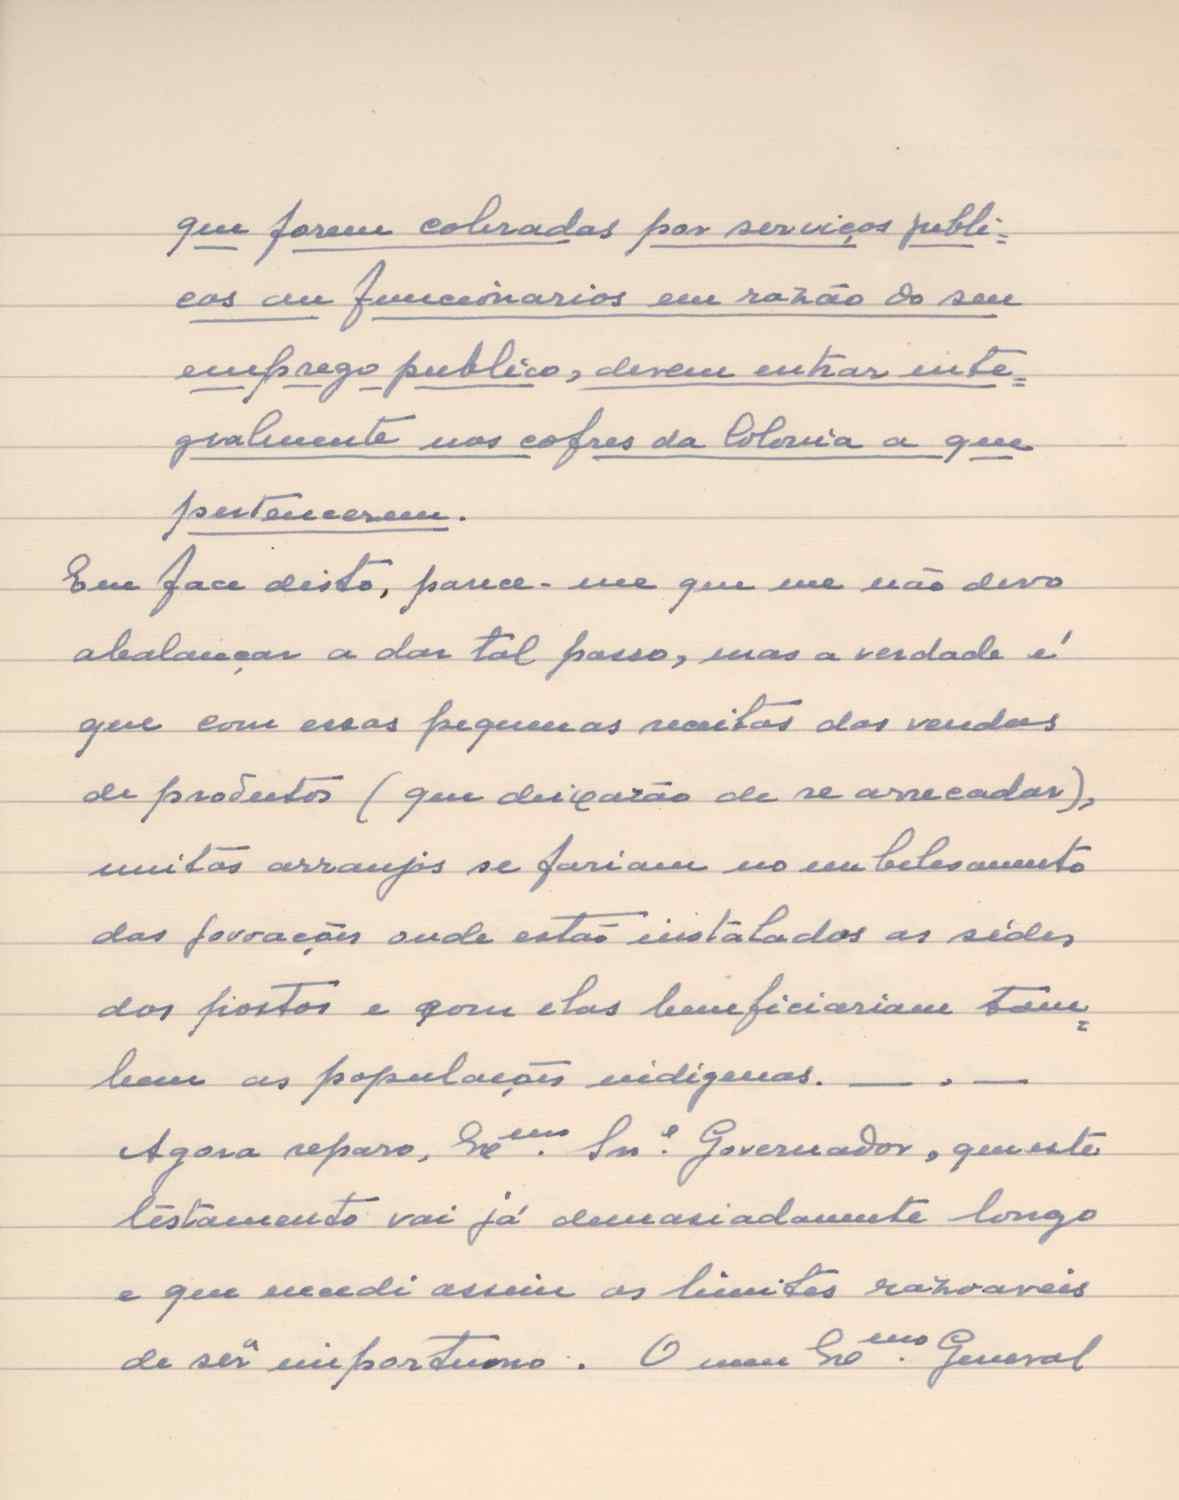 que forem cobradas por serviços publi=
cos ou funcionarios em razão do seu
emprego publico, devem entrar inte=
gralmente nos cofres da Colonia a que
pertencerem.
Em face disto, parece-me que me não devo
abalançar a dar tal passo, mas a verdade é
que com essas pequenas receitas das vendas
de produtos (que deixarão de se arrecadar),
muitos arranjos se fariam no embelesamento
das povoações onde estão instalados as sédes
dos postos e com elas beneficiariam tam=
bem as populações indigenas. — . —
Agora reparo, Exᵐᵒ. Snʳ. Governador, que este
testamento vai já demasiadamente longo
e que excedi assim os limites razoaveis
de ser importuno. O meu Exᵐᵒ. General